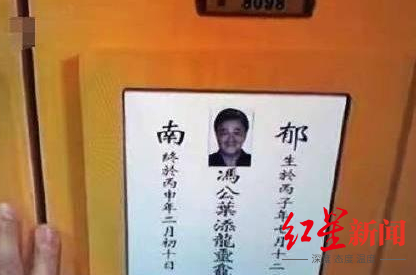 8098
郁南
生於丙子年七月十二
馮公葉添龍靈
終於丙申年二月初十日
红星新闻